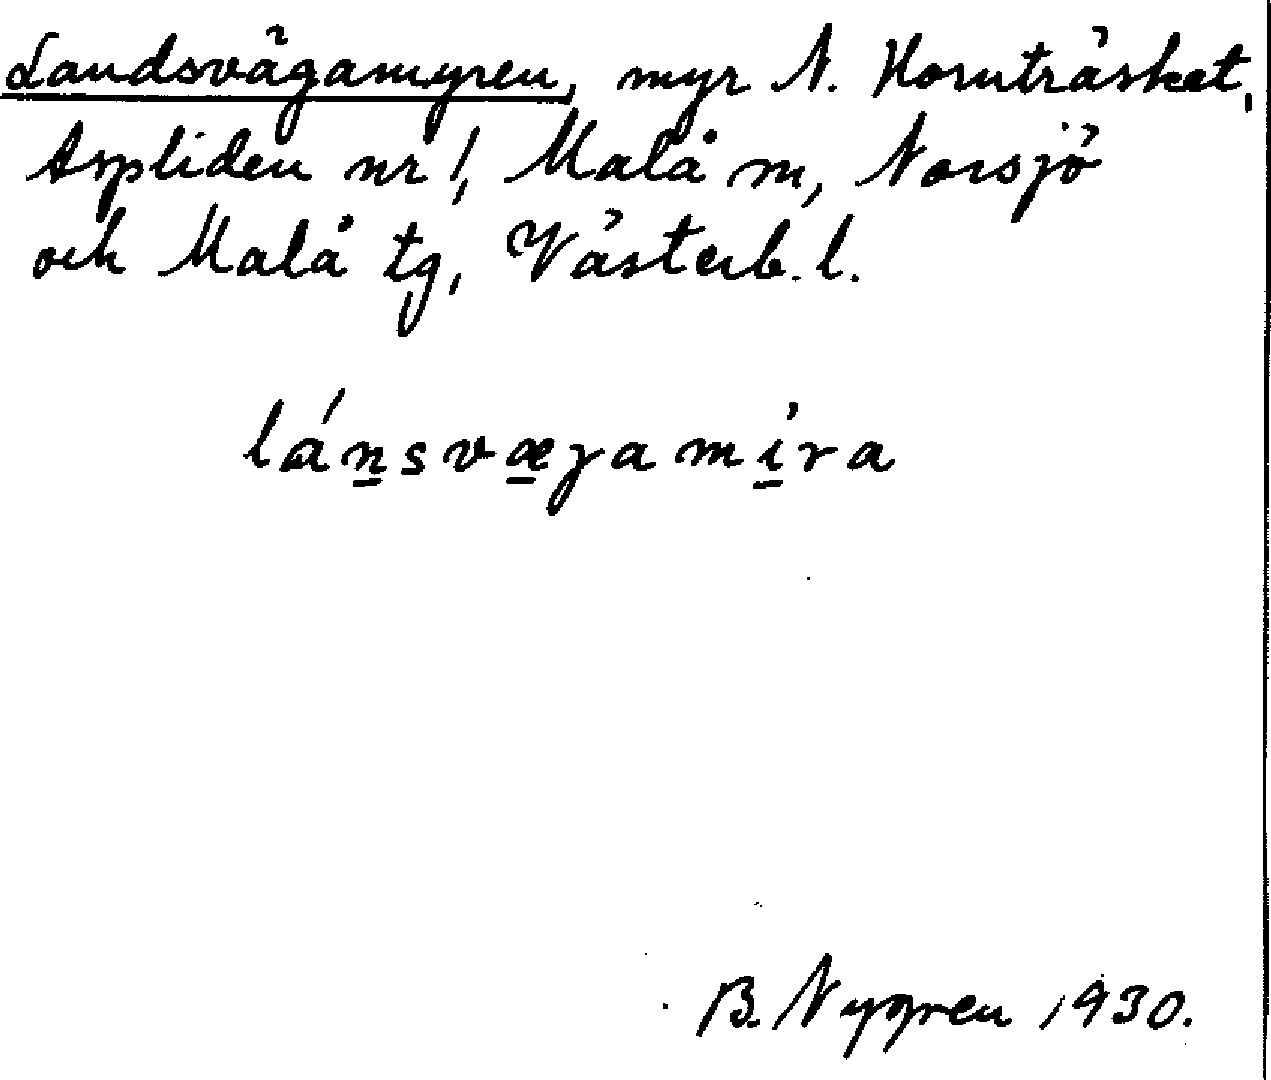 Landsvägamyren, myr N. Hornträsket,
Aspliden nr 1, Malå m, Norsjö
och Malå tg, Västerb. l.
lánsvægamíra
B. Nygren 1930.